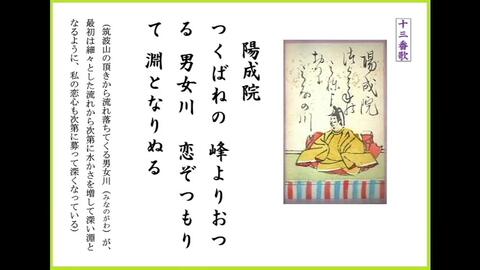 十三番歌
陽成院
つくばねの
陽成院
つくばねの 峰よりおつ
る 男女川 恋ぞつもり
て 淵となりぬる
（筑波山の頂きから流れ落ちてくる男女川（みなのがわ）が、
最初は細々とした流れから次第に水かさを増して深い淵と
なるように、私の恋心も次第に募って深くなっている）